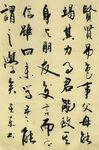 賢賢易色事父母能
竭其力事君能致其
身與朋友交言而有
信雖曰未學吾必
謂之學矣